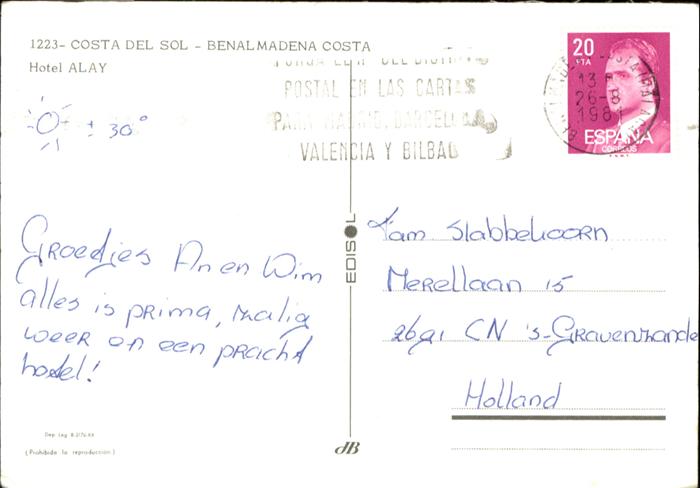 1223- COSTA DEL SOL - BENALMADENA COSTA
Hotel ALAY
± 30°
POSTAL EN LAS CARTAS
PARA MADRID, BARCELONA
VALENCIA Y BILBAO
20
PTA
13
26-8
1981
ESPAÑA
CORREOS
Groedjes An en Wim
alles is prima, zalig
weer en een pracht
hotel!
EDISOL
Fam Slabbekoorn
Merellaan 15
2691 CN 's-Gravenzande
Holland
Dep. Leg. B.
(Prohibida la reproducción)
dB